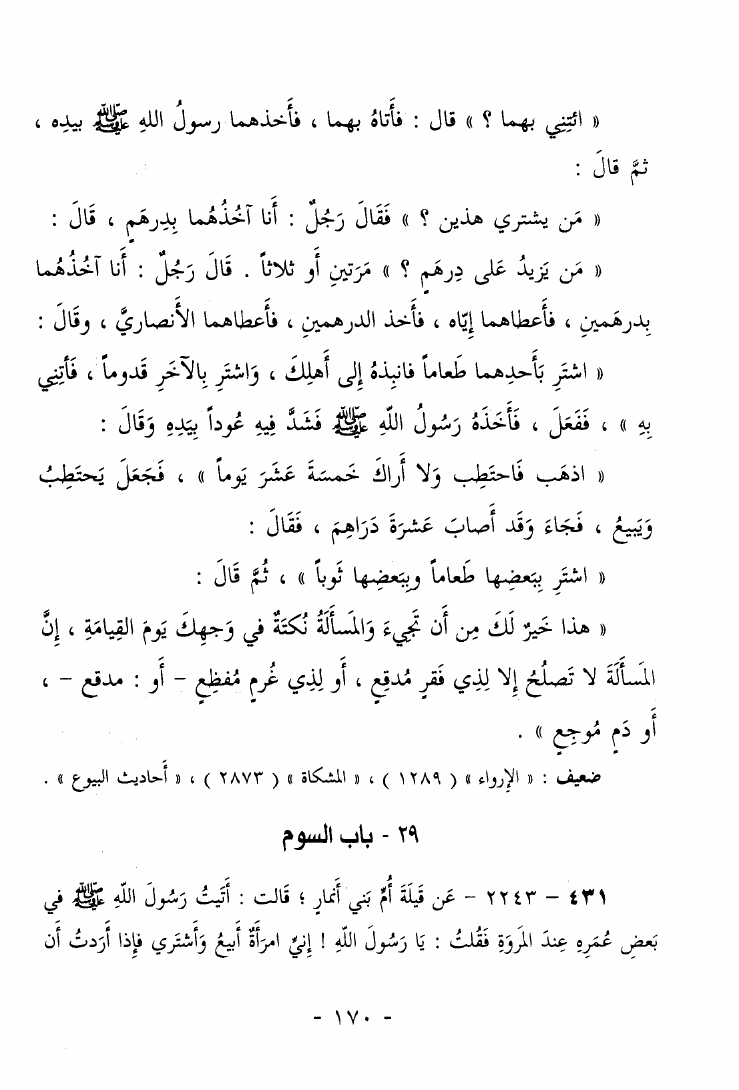 « ائتِنِي بهما ؟ » قال : فأَتاهُ بهما ، فأَخذهما رسولُ اللهِ ﷺ بيدِه ،
ثمَّ قالَ :
« مَن يشتري هذين ؟ » فَقَالَ رَجُلٌ : أَنا آخُذُهُما بِدِرهَمٍ ، قَالَ :
« مَن يَزيدُ عَلى دِرهَمٍ ؟ » مَرَتينِ أَو ثلاثاً . قَالَ رَجُلٌ : أَنا آخُذُهُما
بِدرهَمينِ ، فأَعطاهما إِيّاه ، فأَخذ الدرهمينِ ، فأَعطاهما الأَنصاريَّ ، وقَالَ :
« اشتَرِ بَأَحدِهما طَعاماً فانبِذهُ إِلى أَهلِكَ ، وَاشتَرِ بِالآخَرِ قَدوماً ، فَأتِنِي
بِهِ » ، فَفَعَلَ ، فَأَخَذَهُ رَسُولُ اللّهِ ﷺ فَشَدَّ فِيهِ عُوداً بِيَدِهِ وَقَالَ :
« اذهَب فَاحتَطِب وَلا أَراكَ خَمسَةَ عَشَرَ يَوماً » ، فَجَعَلَ يَحتَطِبُ
وَيَبيعُ ، فَجَاءَ وَقَد أَصابَ عَشرَةَ دَرَاهِمَ ، فَقَالَ :
« اشتَرِ بِبَعضِها طَعاماً وبِبَعضِها ثَوباً » ، ثُمَّ قَالَ :
« هذا خَيرٌ لَكَ مِن أَن تَجِيءَ وَالمَسأَلَةُ نُكتَةٌ في وَجهِكَ يَومَ القِيامَةِ ، إِنَّ
المَسأَلَةَ لا تَصلُحُ إِلا لِذِي فَقرٍ مُدقِعٍ ، أَو لِذِي غُرمٍ مُفظِعٍ – أَو : مدقع – ،
أَو دَمٍ مُوجِعٍ » .
ضعيف : « الإِرواء » ( ١٢٨٩ ) ، « المشكاة » ( ٢٨٧٣ ) ، « أَحاديث البيوع » .
٢٩ - باب السوم
٤٣١ – ٢٢٤٣ – عَن قَيلَةَ أُمِّ بَني أَنمارٍ ؛ قَالت : أَتَيتُ رَسُولَ اللّهِ ﷺ في
بَعضِ عُمَرِهِ عِندَ المَروَةِ فَقُلتُ : يَا رَسُولَ اللّهِ ! إِنِّي امرَأَةٌ أَبيعُ وَأَشتَري فإِذا أَرَدتُ أَن
- ١٧٠ -